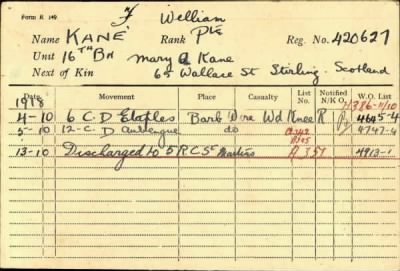 Form R 149
F William
Name KANE Rank Pte Reg. No. 420627
Unit 16TH Bn Mary A Kane
Next of Kin 65 Wallace St Stirling Scotland
Date Movement Place Casualty List No. Notified N/K O W.O. List
1918 A386-11/10
4-10 6 C.D Etaples Barb Wire Wd Knee R 4645-4
5-10 12-C.D Aubengue do 4747-4
13-10 Discharged to 5 R C St Martins A 357 4913-1